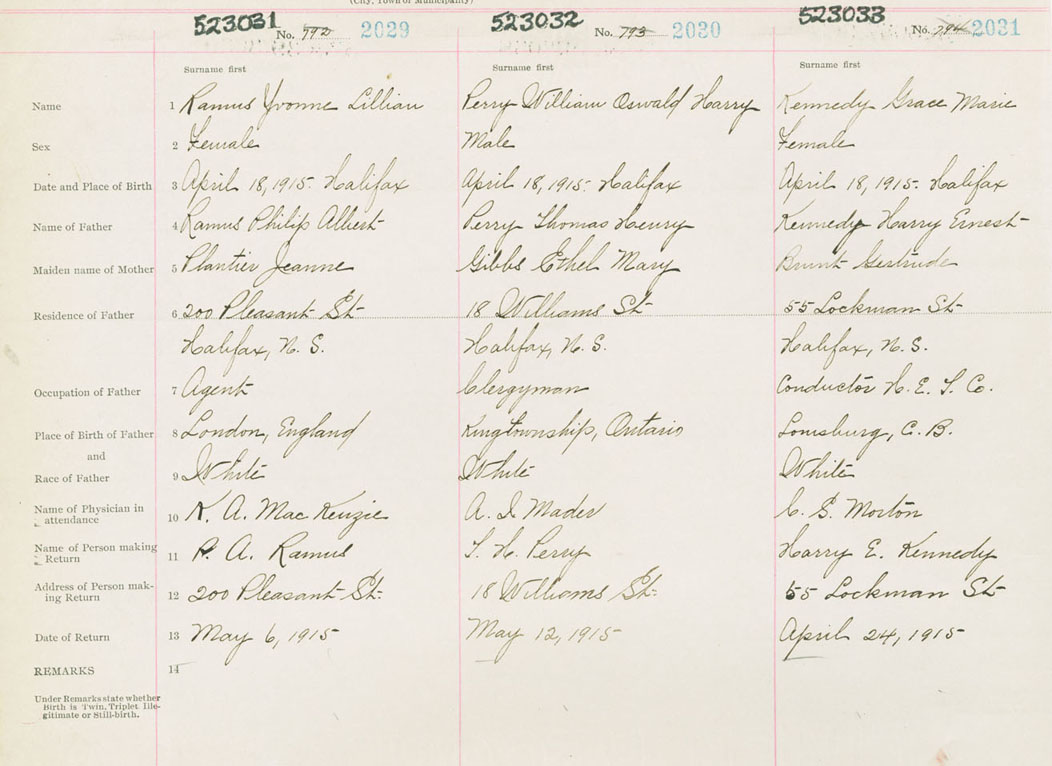 (City, Town or Municipality)
523031 No. 792 2029 523032 No. 793 2030 523033 No. 794 2031
Surname first Surname first Surname first
Name 1 Ramus Yvonne Lillian Perry William Oswald Harry Kennedy Grace Marie
Sex 2 Female Male Female
Date and Place of Birth 3 April 18, 1915. Halifax April 18, 1915. Halifax April 18, 1915. Halifax
Name of Father 4 Ramus Philip Albert Perry Thomas Henry Kennedy Harry Ernest
Maiden name of Mother 5 Plantier Jeanne Gibbs Ethel Mary Brunt Gertrude
Residence of Father 6 200 Pleasant St. 18 Williams St 55 Lockman St
Halifax, N. S. Halifax, N. S. Halifax, N. S.
Occupation of Father 7 Agent Clergyman Conductor H. E. T. Co.
Place of Birth of Father 8 London, England Kingtownship, Ontario Louisburg, C. B.
and
Race of Father 9 White White White
Name of Physician in
attendance 10 K. A. MacKenzie A. I. Mader C. S. Morton
Name of Person making
Return 11 P. A. Ramus T. H. Perry Harry E. Kennedy
Address of Person mak-
ing Return 12 200 Pleasant St. 18 Williams St. 55 Lockman St
Date of Return 13 May 6, 1915 May 12, 1915 April 24, 1915
REMARKS 14
Under Remarks state whether
Birth is Twin, Triplet, Ille-
gitimate or Still-birth.